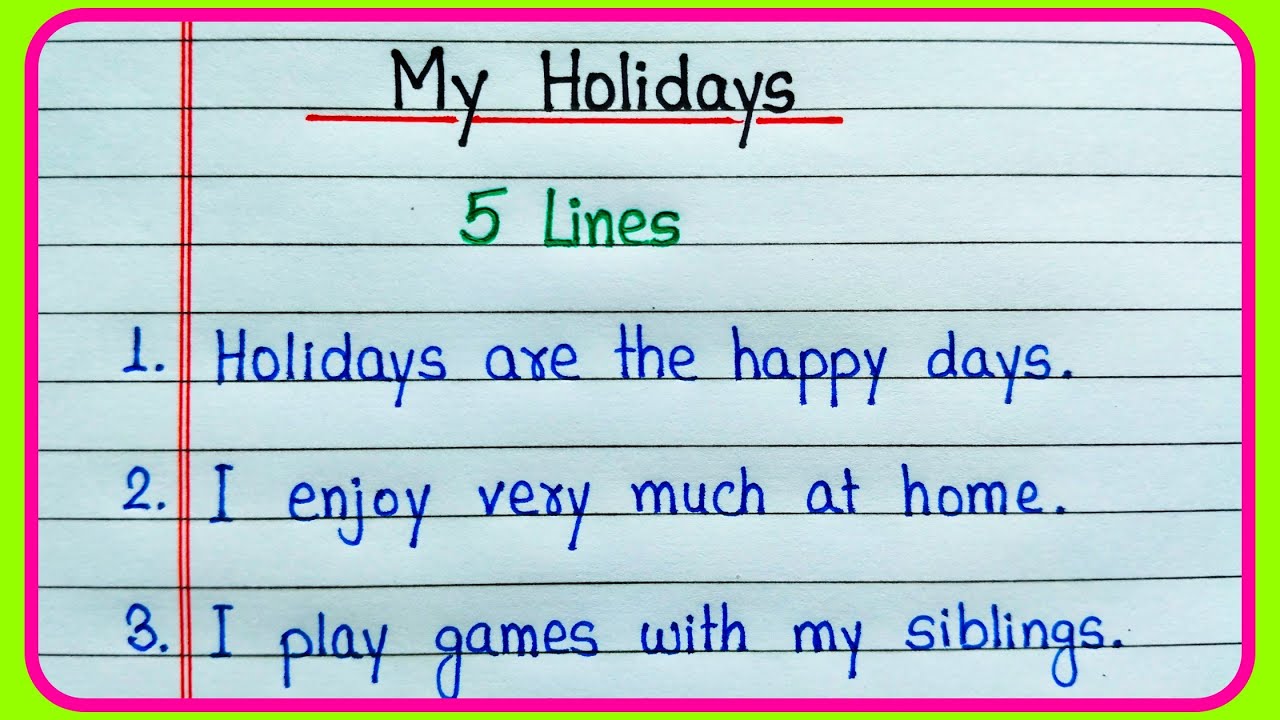 My Holidays
5 Lines
1. Holidays are the happy days.
2. I enjoy very much at home.
3. I play games with my siblings.